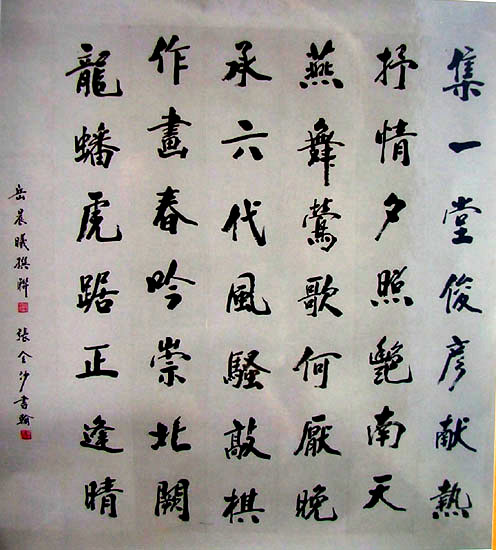 集一堂俊彦献熱
抒情夕照艷南天
燕舞鶯歌何厭晚
承六代風騷敲棋
作畫春吟崇北闕
龍蟠虎踞正逢晴
岳晨曦撰聯 張書翰